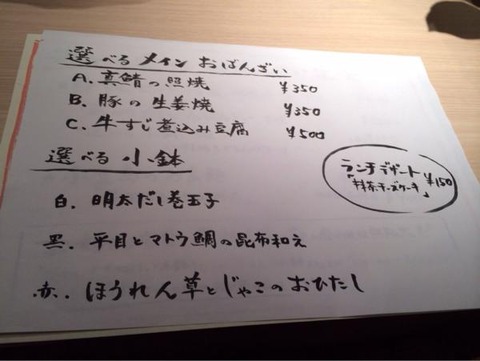 選べるメインおばんざい
A. 真鯖の照焼 ¥350
B. 豚の生姜焼 ¥350
C. 牛すじ煮込み豆腐 ¥500
選べる小鉢
白. 明太だし巻玉子
黒. 平目とマトウ鯛の昆布和え
赤. ほうれん草とじゃこのおひたし
ランチデザート
「抹茶チーズケーキ」 ¥150